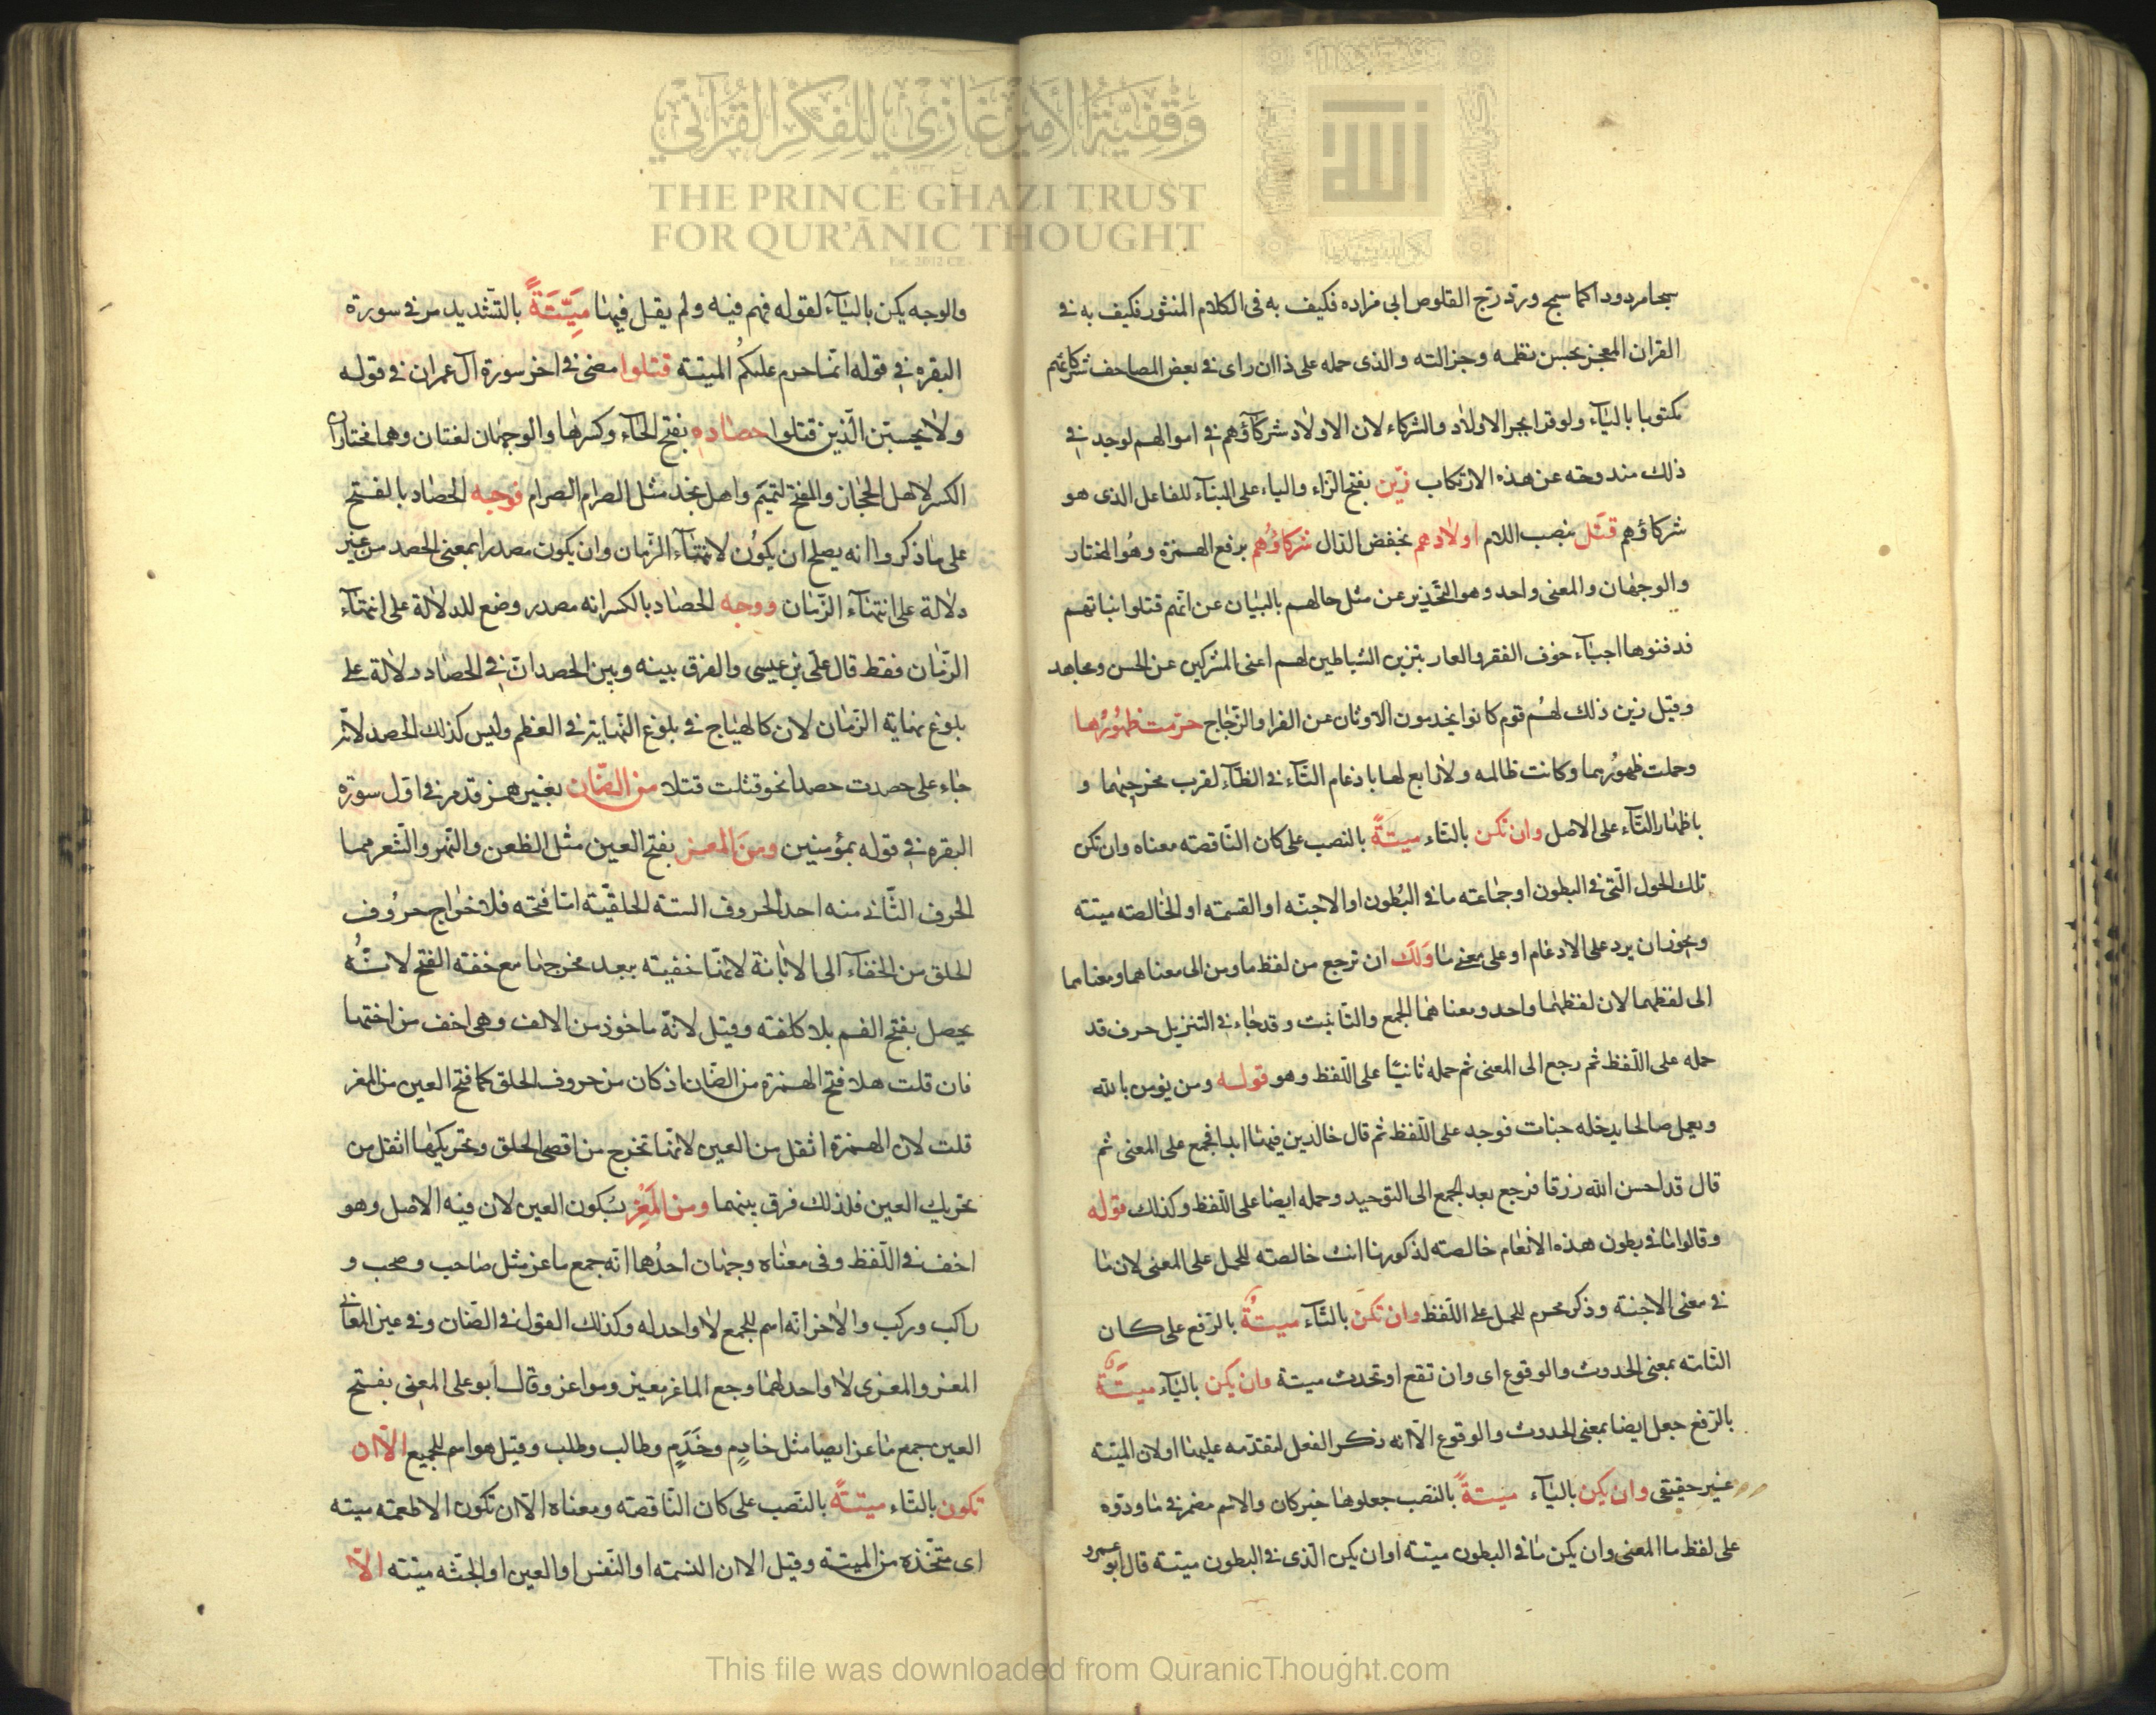 وقفية الأمير غازي للفكر القرآني
THE PRINCE GHAZI TRUST
FOR QUR'ĀNIC THOUGHT
Est. 2012 CE
الله
سمجا مردودا كما سمج ورد زج القلوص ابى مزاده فكيف به فى الكلام المنثور فكيف به فى
القران المعجز بحسن نظمه وجزالته والذى حمله على ذا ان راى فى بعض المصاحف شركائهم
مكتوبا بالياء ولو قرا بجر الاولاد والشركاء لان الاولاد شركاؤهم فى اموالهم لوجد فى
ذلك مندوحته عن هذه الارتكاب زين بفتح الزاء والياء على البناء للفاعل الذى هو
شركاؤهم قتل بنصب اللام اولادهم بخفض الدال شركاؤهم برفع الهمزة وهو المختار
والوجهان والمعنى واحد وهو التحذير عن مثل حالهم بالبيان عن انهم قتلوا بناتهم
فدفنوها احياء خوف الفقر والعار بتزين الشياطين لهم اعنى المشركين عن الحسن ومجاهد
وقيل زين ذلك لهم قوم كانوا يخدمون الاوثان عن الفرا والزجاج حرمت ظهورها
وحملت ظهورهما وكانت ظالمه ولا رابع لها بادغام التاء فى الظاء لقرب مخرجيهما و
باظهار التاء على الاصل وان تكن بالتاء ميتة بالنصب على كان الناقصته معناه وان تكن
تلك الحول التى فى البطون او جماعته ما فى البطون او الاجنه او القسمته او الخالصته ميتته
ويجوز ان يرد على الادغام او على معنى ما ولك ان ترجع من لفظ ما ومن الى معناهما ومعناهما
الى لفظهما لان لفظهما واحد ومعناهما الجمع والتانيث وقد جاء فى التنزيل حرف قد
حمله على اللفظ ثم رجع الى المعنى ثم حمله ثانيا على اللفظ وهو قوله ومن يؤمن بالله
ويعمل صالحا يدخله جنات فوجه على اللفظ ثم قال خالدين فيها ابدا فجمع على المعنى ثم
قال قد احسن الله رزقا فرجع بعد الجمع الى التوحيد وحمله ايضا على اللفظ وكذلك قوله
وقالوا ما فى بطون هذه الانعام خالصته لذكورنا انث خالصته للحمل على المعنى لان ما
فى معنى الاجنته وذكر محرم للحمل على اللفظ وان تكن بالتاء ميتة بالرفع على كان
التامته بمعنى الحدوث والوقوع اى وان تقع او تحدث ميتة وان يكن بالياء ميتة
بالرفع جعل ايضا بمعنى الحدوث والوقوع الا انه ذكر الفعل لتقدمه عليها او لان الميتته
غير حقيقى وان يكن بالياء ميتة بالنصب جعلوها خبر كان والاسم مضمر فى ما وردوه
على لفظ ما المعنى وان يكن ما فى البطون ميتته او ان يكن الذى فى البطون ميتته قال ابو عمرو
والوجه يكن بالياء لقوله فهم فيه ولم يقل فيها ميتة بالتشديد مر فى سورة
البقره فى قوله انما حرم عليكم الميتة قتلوا مضى فى اخر سورة ال عمران فى قوله
ولا يحسبن الذين قتلوا حصاده بفتح الحاء وكسرها والوجهان لغتان وهما مختاران
الكسر لاهل الحجاز والفتح لتميم واهل نجد مثل الصرام الصرام فوجه الحصاد بالفتح
على ما ذكروا انه يصلح ان يكون لانتهاء الزمان وان يكون مصدرا بمعنى الحصد من غير
دلالة على انتهاء الزمان ووجه الحصاد بالكسر انه مصدر وضع للدلالة على انتهاء
الزمان فقط قال على بن عيسى والفرق بينه وبين الحصد ان فى الحصاد دلالة على
بلوغ نهاية الزمان لان كالهياج فى بلوغ النهايتر فى العظم وليس كذلك الحصد لانه
جاء على حصدت حصدا نحو قتلت قتلا من الضان بغير همز قد مر فى اول سورة
البقره فى قوله بمؤمنين ومن المعز بفتح العين مثل الظعن والنهر والشعر مما
الحرف الثانى منه احد الحروف الستة الحلقيته اما فتحه فلاخراج حروف
الحلق من الخفاء الى الابانة لانها خفيته ببعد مخرجها مع خفته الفتح لانه
يحصل بفتح الفم بلا كلفته وقيل لانه ماخوذ من الالف وهى اخف من اختها
فان قلت هلا فتح الهمزة من الضان اذ كان من حروف الحلق كما فتح العين من المعز
قلت لان الهمزة اثقل من العين لانها تخرج من اقصى الحلق وتحريكها اثقل من
تحريك العين فلذلك فرق بينهما ومن المعز بسكون العين لان فيه الاصل وهو
اخف فى اللفظ وفى معناه وجهان احدهما انه جمع ماعز مثل صاحب وصحب و
راكب وركب والاخر انه اسم للجمع لا واحد له وكذلك القول فى الضان وفى عين المعانى
المعز والمعزى لا واحد لهما وجمع الماعز معيز ومواعز وقال ابو على المعز بفتح
العين جمع ماعز ايضا مثل خادم وخدم وطالب وطلب وقيل هو اسم للجميع الا ان
تكون بالتاء ميتة بالنصب على كان الناقصته ومعناه الا ان تكون الاطعمته ميته
اى متخذه من الميتة وقيل الا ان النسمته او النفس او العين او الجثه ميته الا
This file was downloaded from QuranicThought.com